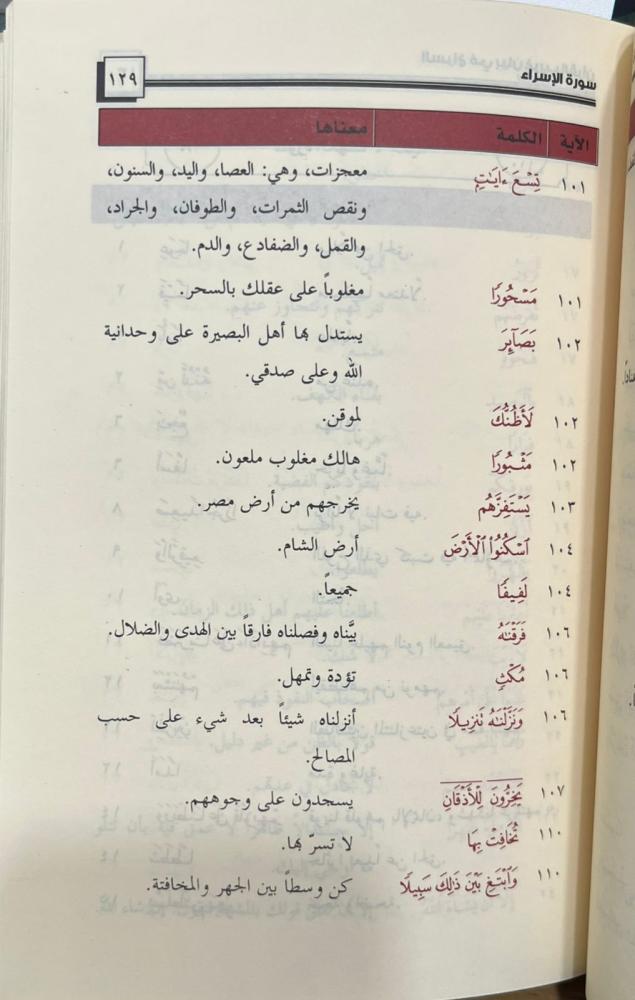 سورة الإسراء ١٢٩
الآية الكلمة معناها
١٠١ تِسْعَ ءَايَٰتٍ معجزات، وهي: العصا، واليد، والسنون،
ونقص الثمرات، والطوفان، والجراد،
والقمل، والضفادع، والدم.
١٠١ مَسْحُورًا مغلوباً على عقلك بالسحر.
١٠٢ بَصَآئِرَ يستدل بها أهل البصيرة على وحدانية
الله وعلى صدقي.
١٠٢ لَأَظُنُّكَ لموقن.
١٠٢ مَثْبُورًا هالك مغلوب ملعون.
١٠٣ يَسْتَفِزَّهُم يخرجهم من أرض مصر.
١٠٤ ٱسْكُنُوا۟ ٱلْأَرْضَ أرض الشام.
١٠٤ لَفِيفًا جميعاً.
١٠٦ فَرَقْنَٰهُ بيَّناه وفصلناه فارقاً بين الهدى والضلال.
١٠٦ مُكْثٍ تؤدة وتمهل.
١٠٦ وَنَزَّلْنَٰهُ تَنزِيلًا أنزلناه شيئاً بعد شيء على حسب
المصالح.
١٠٧ يَخِرُّونَ لِلْأَذْقَانِ يسجدون على وجوههم.
١١٠ تُخَافِتْ بِهَا لا تسرّ بها.
١١٠ وَٱبْتَغِ بَيْنَ ذَٰلِكَ سَبِيلًا كن وسطاً بين الجهر والمخافتة.